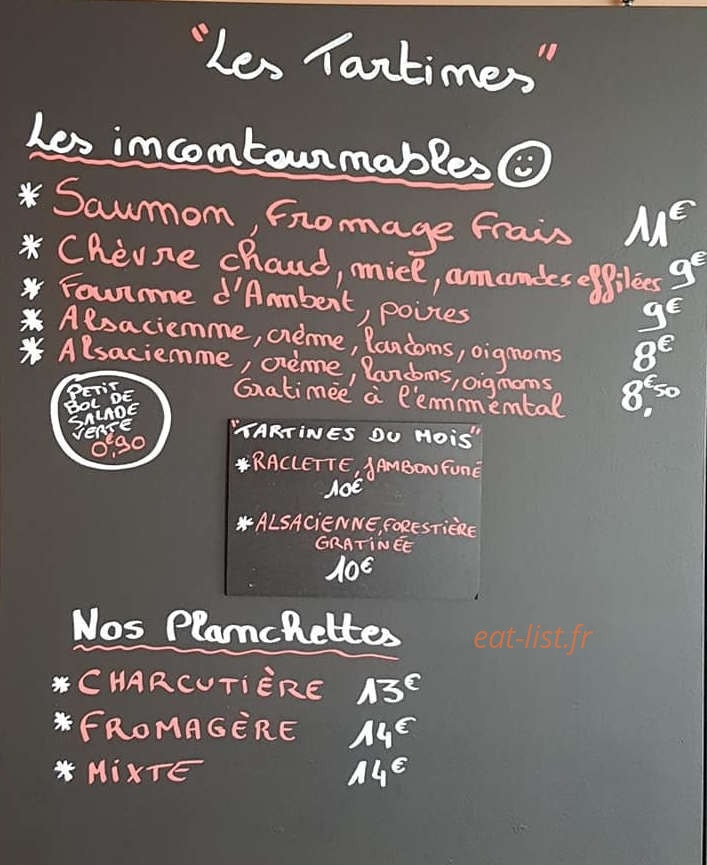 "Les Tartines"
Les incontournables
* Saumon, Fromage Frais 11€
* Chèvre chaud, miel, amandes effilées 9€
* Fourme d'Ambert, poires 9€
* Alsacienne, crème, lardons, oignons 8€
* Alsacienne, crème, lardons, oignons
Gratinée à l'emmental 8,€50
PETIT
BOL DE
SALADE
VERTE
0,€90
"TARTINES DU MOIS"
* RACLETTE, JAMBON FUMÉ
10€
* ALSACIENNE, FORESTIÈRE
GRATINÉE
10€
Nos Planchettes
* CHARCUTIÈRE 13€
* FROMAGÈRE 14€
* MIXTE 14€
eat-list.fr